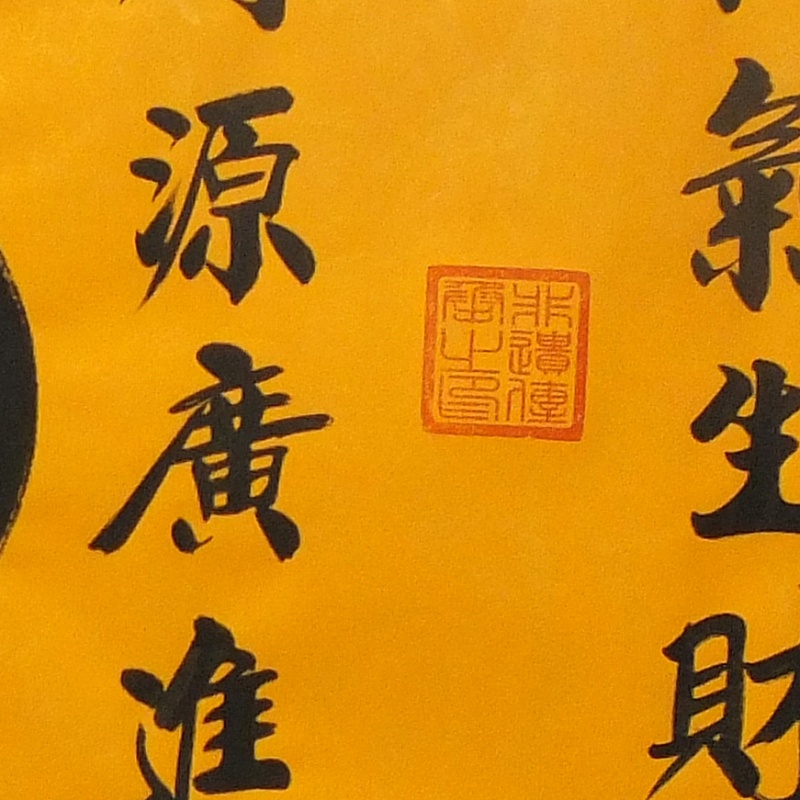 氣生財
非遺傳
之印
源廣進